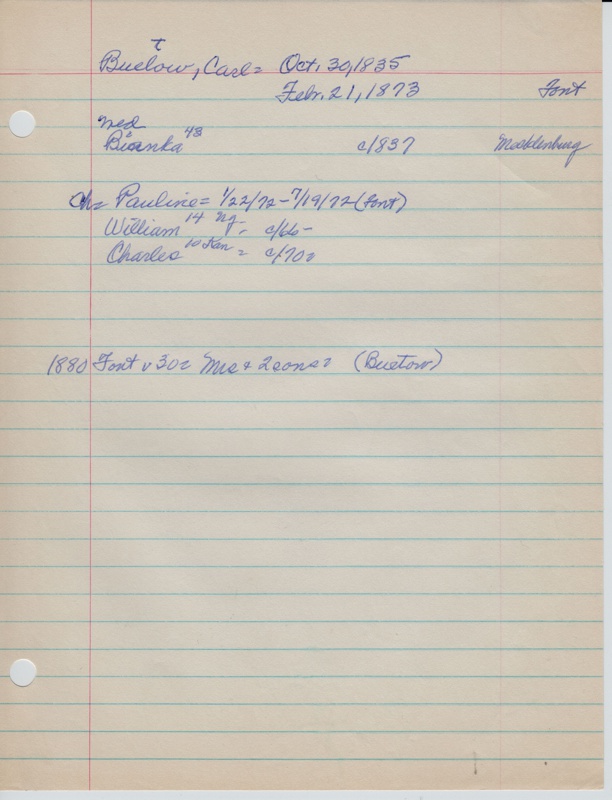 t
Buelow, Carl = Oct. 30, 1835
Feb. 21, 1873 Font
med
Bianka 43 c/837 Mecklenburg
Ch = Pauline = 1/22/72 - 7/19/72 (Font)
William 14 Ng - c/66 -
Charles 10 Kan = c/70 =
1880 Font v 30 = Mrs + 2 sons = (Buetow)